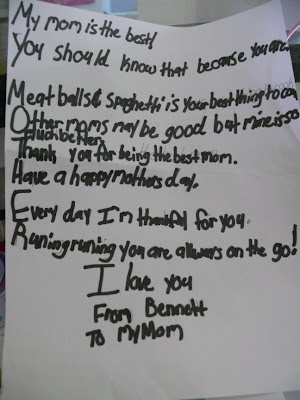 My mom is the best!
You should know that because you are.
Meat balls & Spaghetti is your best thing to coo
Other moms may be good but mine is so
Much better.
Thank you for being the best mom.
Have a happy mothers day.
Every day I'm thankful for you.
Runing runing you are allways on the go!
I love you
From Bennett
To My Mom